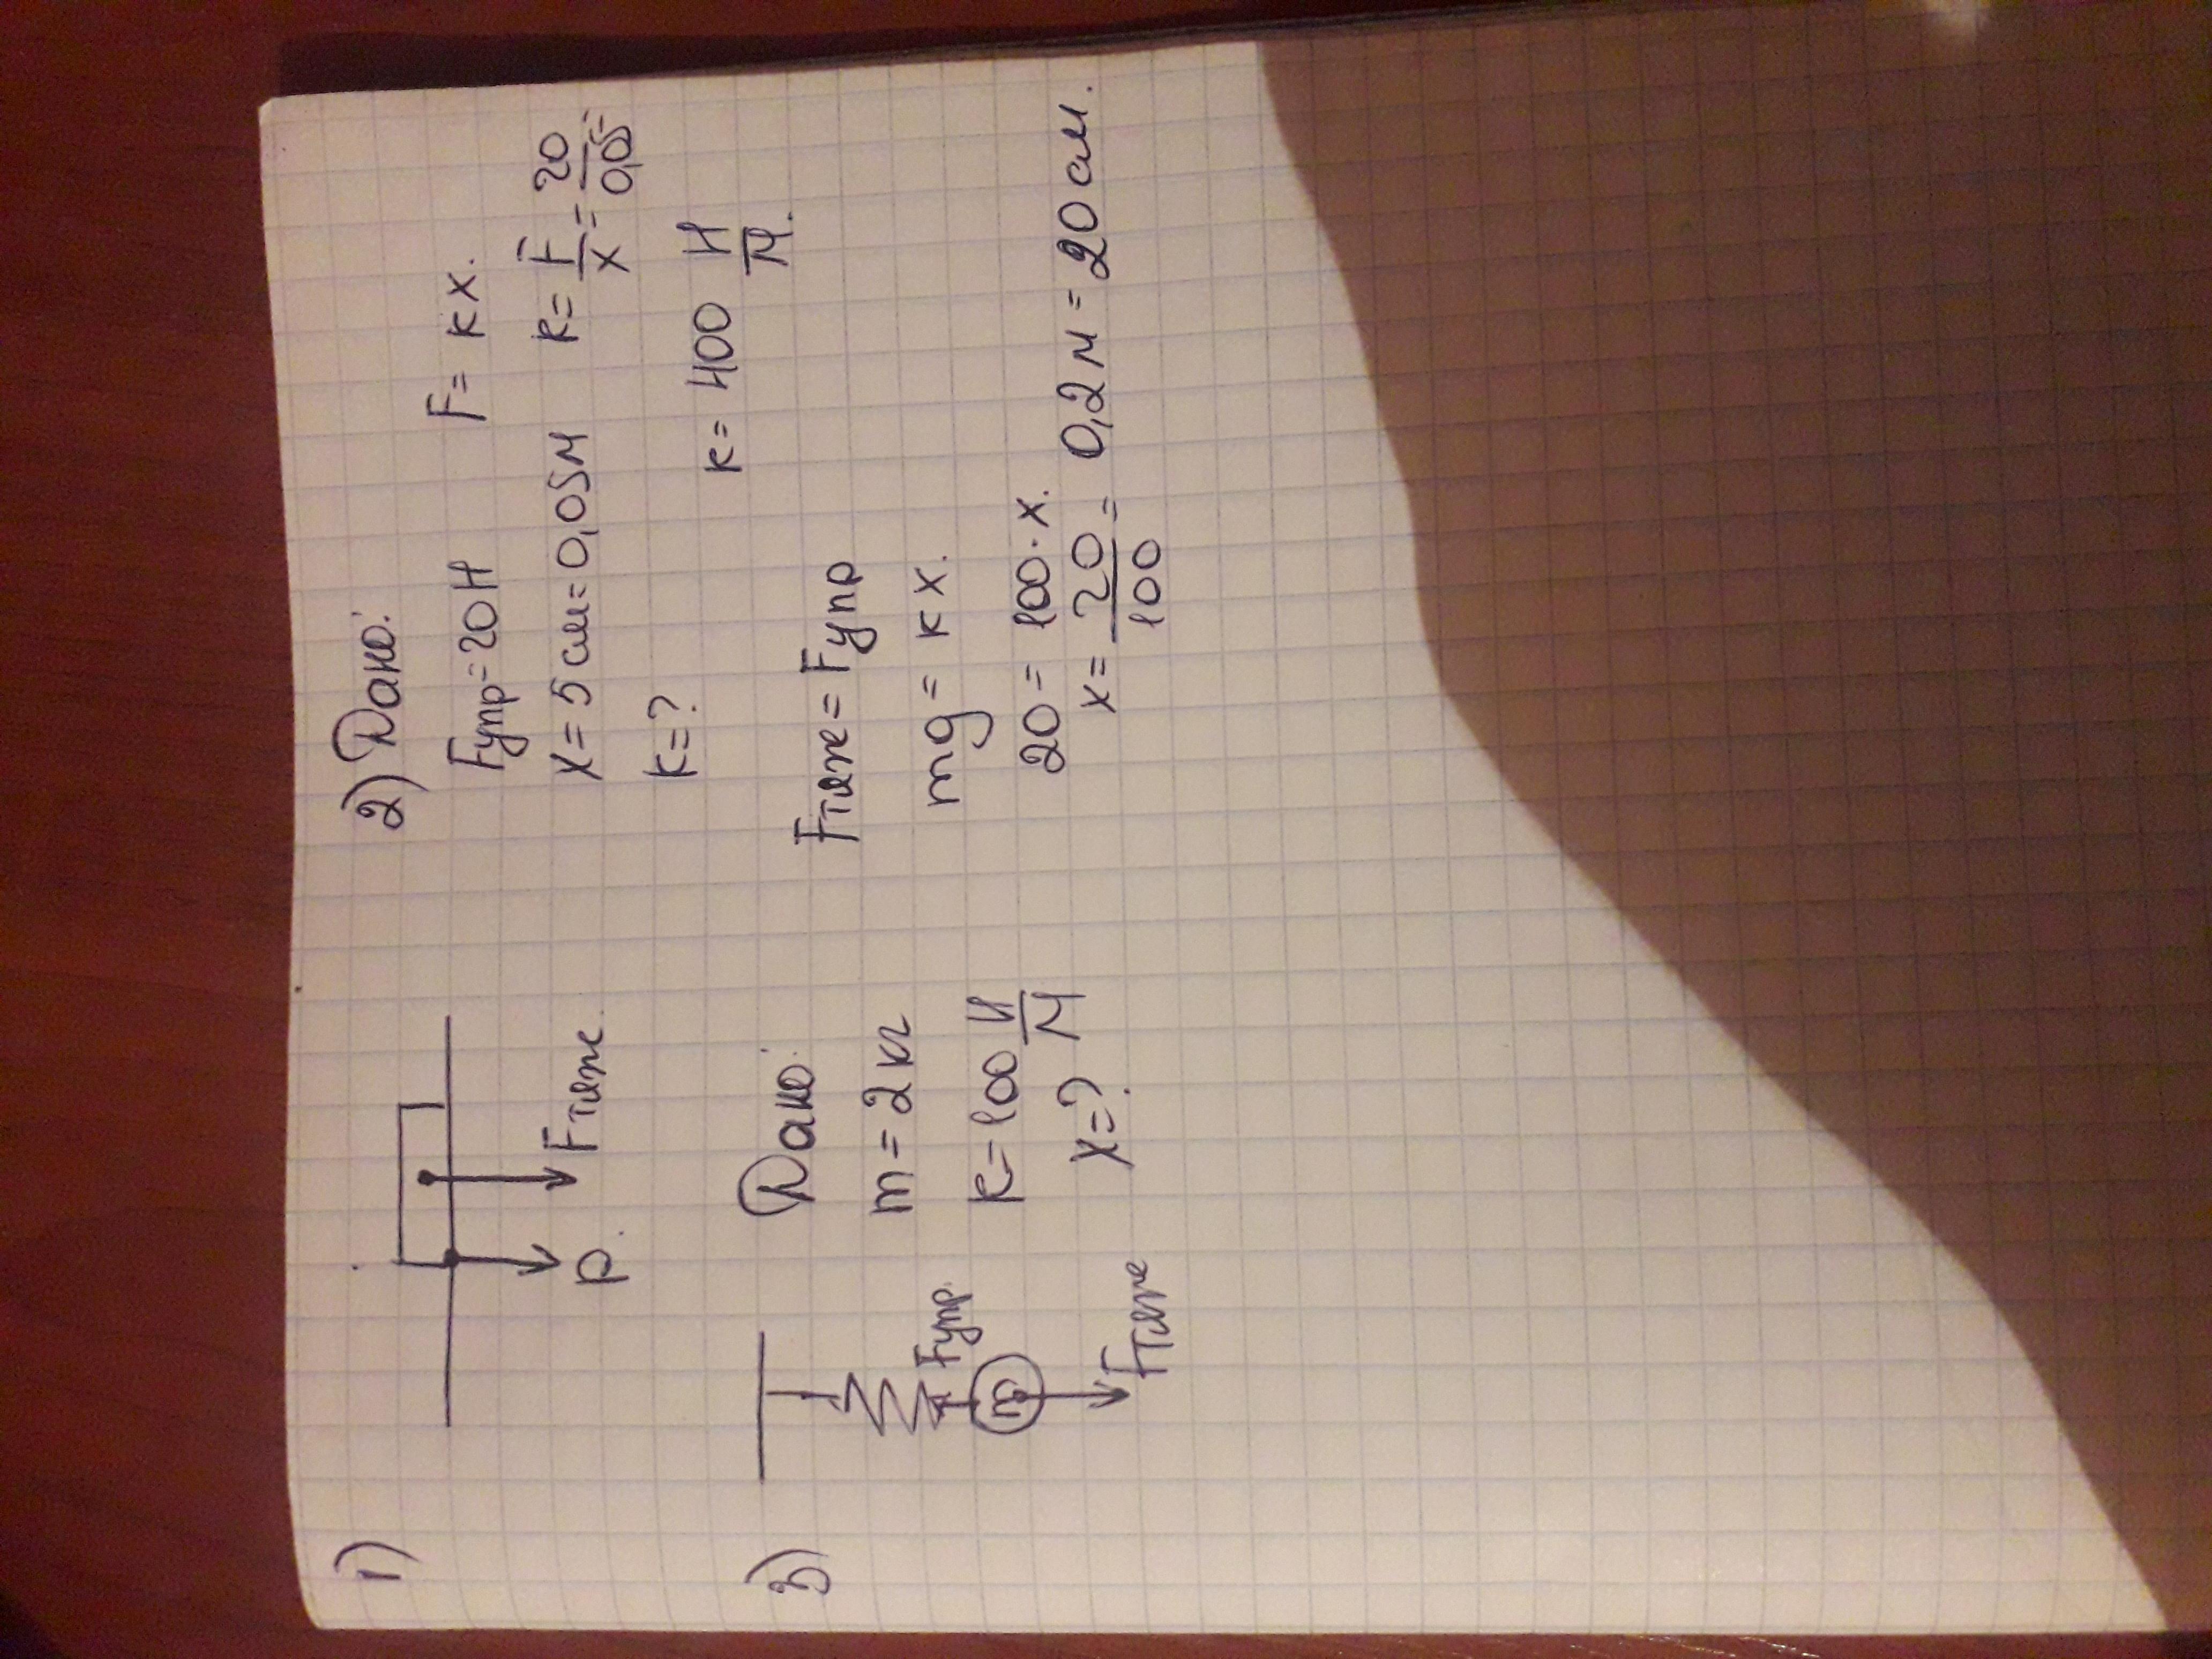 1)
P.
Fтяж.
2) Дано:
Fупр=20Н
x=5см=0,05м
k=?
F= kx.
k= F/x = 20/0,05=
k= 400 Н/м.
3)
Fупр.
m
Fтяж
Дано:
m=2кг
k=100 Н/м
x=?
Fтяж=Fупр
mg= kx.
20= 100·x.
x= 20/100 = 0,2м=20см.